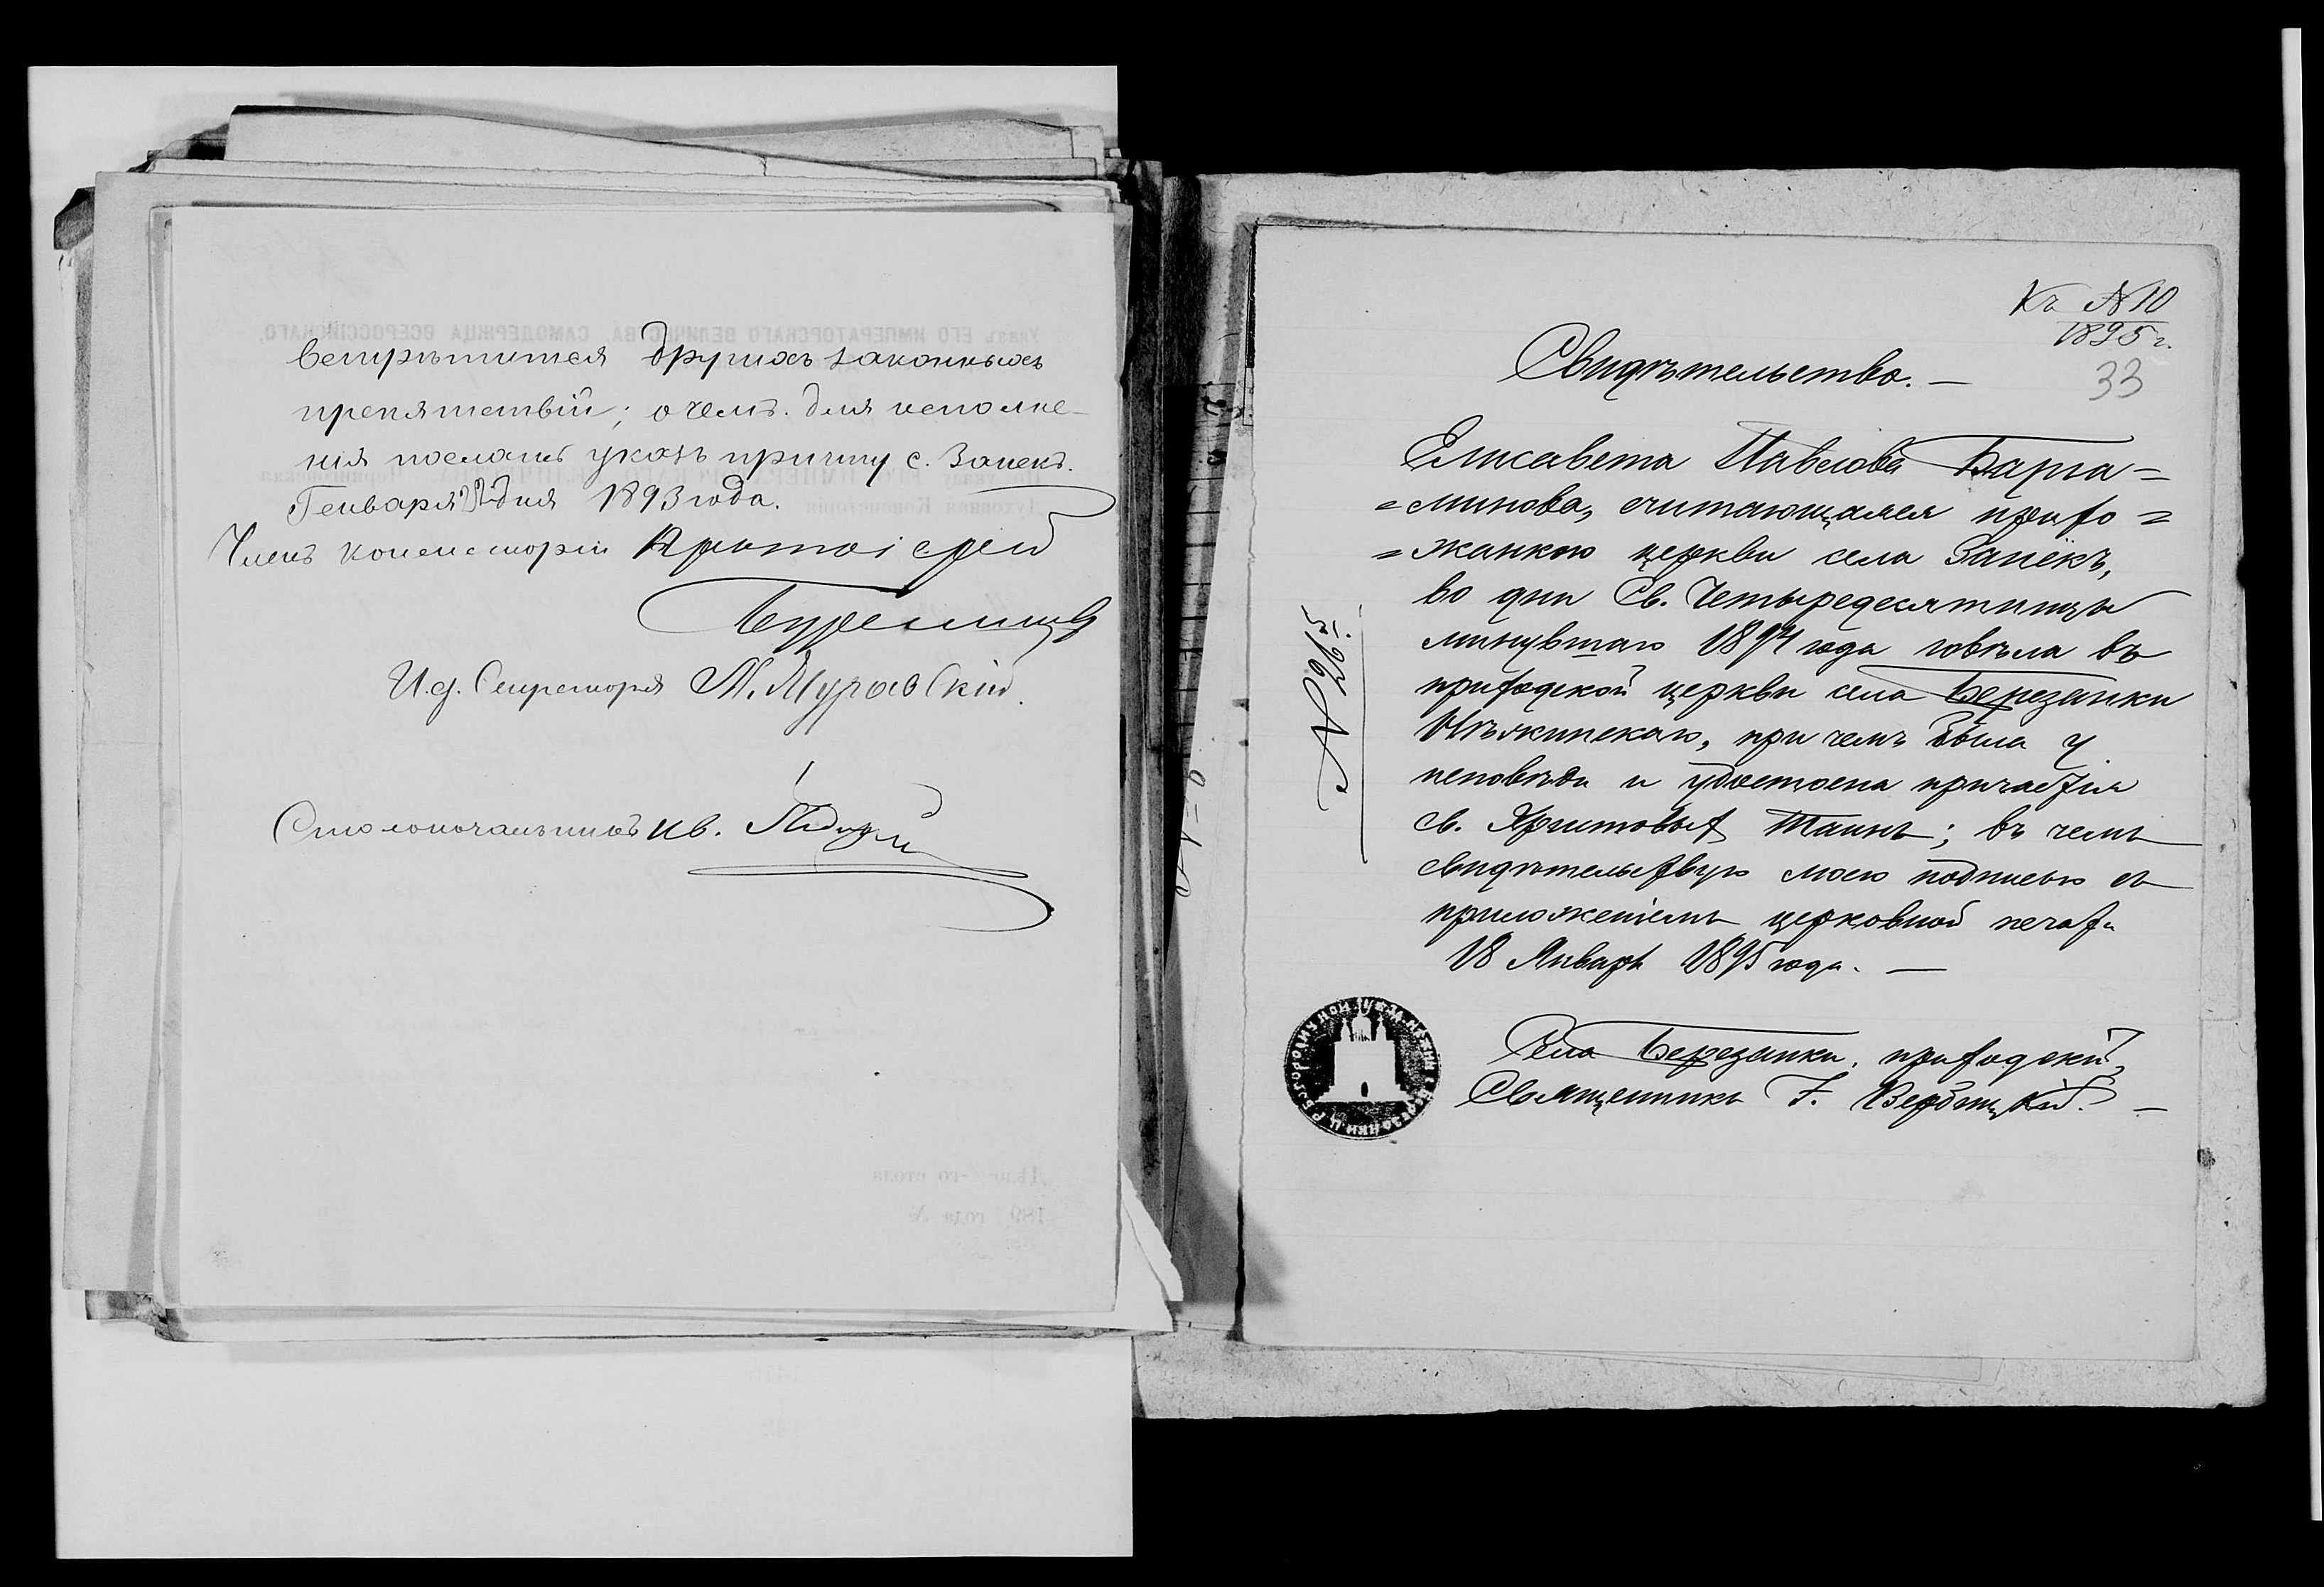 встрѣтится другихъ законныхъ
препятствій; о чемъ для исполне-
нія посланъ указъ причту с. Запекъ.
Генваря 22 дня 1893 года.
Членъ консисторіи Протоіерей
И. д. Секретаря М. Муравскій.
Столоначальникъ Ив.
Къ № 10
1895 г.
33
Свидѣтельство. —
Елисавета Павлова Барта=
=минова, считающаяся прихо=
=жанкою церкви села Запекъ,
во дни Св. Четыредесятницы
минувшаго 1894 года говѣла въ
приходской церкви села Березанки
Нѣжинскаго, при чемъ была у
исповѣди и удостоена причастія
св. Христовыхъ Таинъ; въ чемъ
свидѣтельствую моею подписью съ
приложеніемъ церковной печати
18 Января 1895 года. —
Села Березанки, приходскій
Священникъ Г. Вербицкій. —